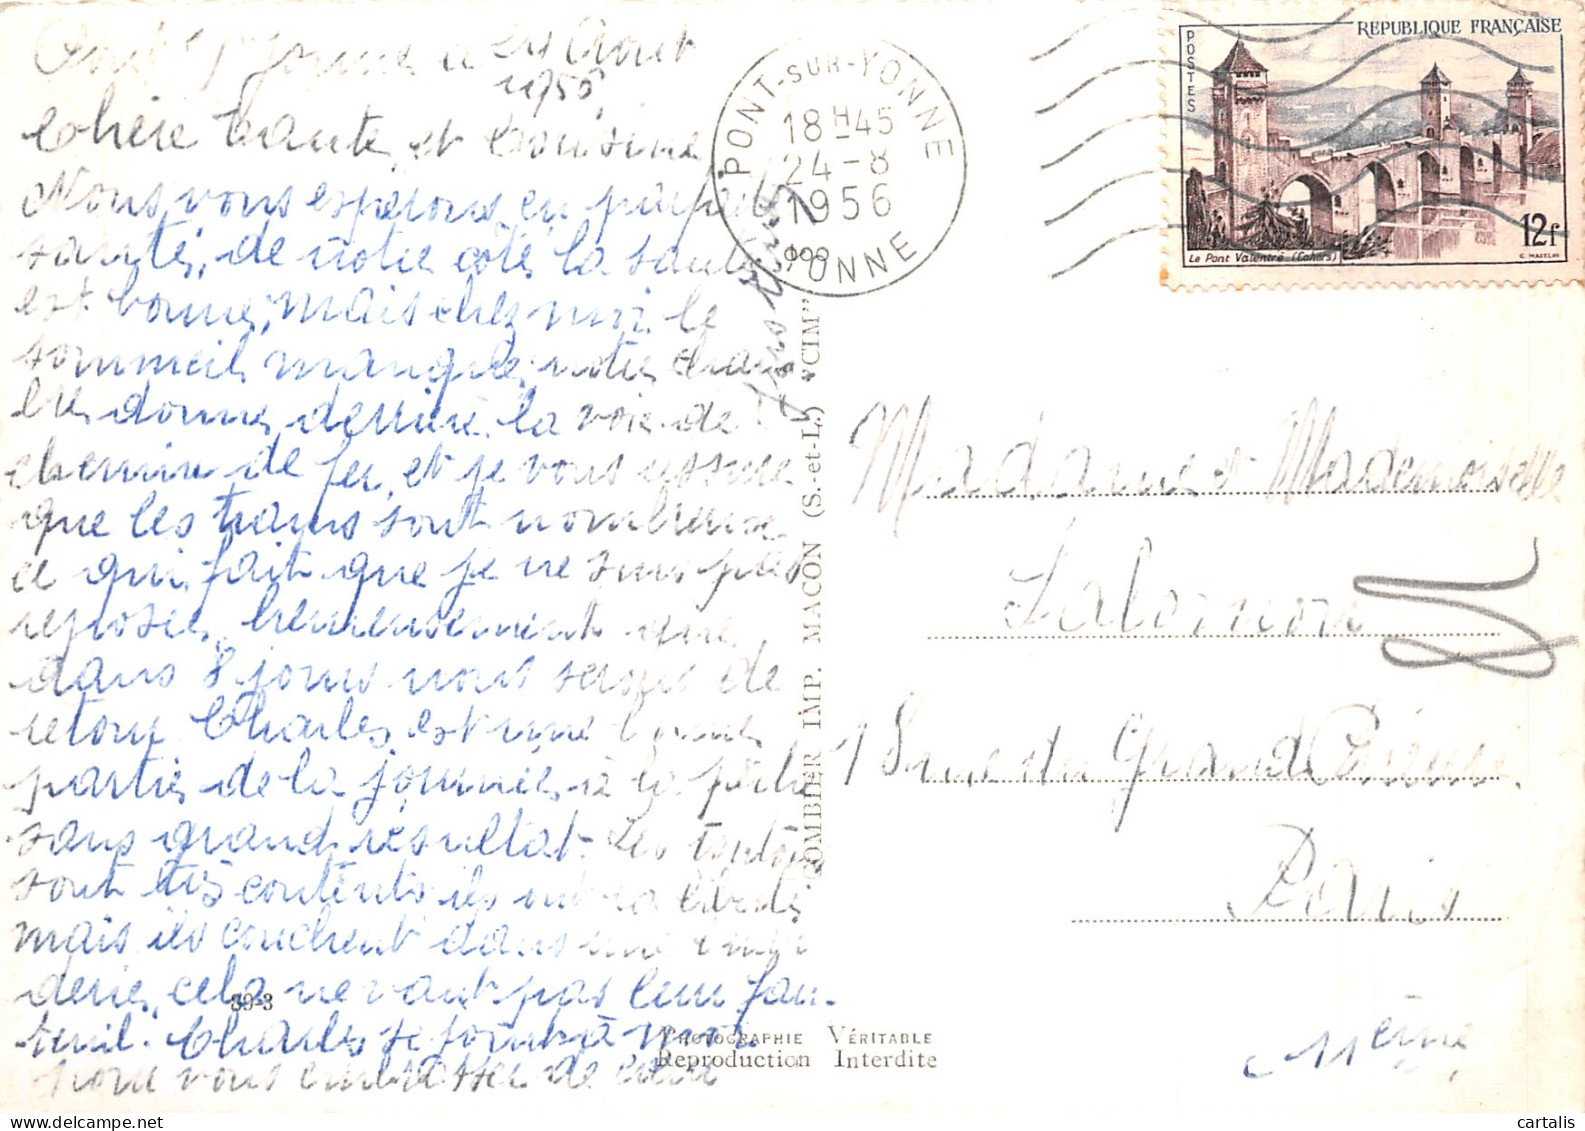 Pont s/ Yonne le 24 Aout
1956,
Chère tante, et Cousine
Nous vous esperons en parfaite
santé, de notre côté la santé
est bonne, mais chez moi le
sommeil manque, notre cham
bre donne derrière la voie de
chemin de fer, et je vous assure
que les trains sont nombreuse
ce qui fait que je ne suis pas
reposée, heureusement que
dans 8 jours nous serons de
retour Charles est une bonne
partie de la journée à la pêche
sans grand résultat. Les toutous
sont très contents ils ont la liberté
mais ils couchent dans une
derie, cela ne vaut pas leur fau-
teuil. Charles se joint à moi
pour vous embrasser de cœur
PONT-SUR-YONNE
18H45
24-8
1956
YONNE
REPUBLIQUE FRANÇAISE
POSTES
12f
Le Pont Valentré (Cahors)
C. MAZELIN
COMBIER IMP. MACON (S.-et-L.) "CIM"
Madame et Mademoiselle
Salomon
18 rue du Grand Prieuré
Paris
11ème
39-3
PHOTOGRAPHIE VÉRITABLE
Reproduction Interdite
cartalis